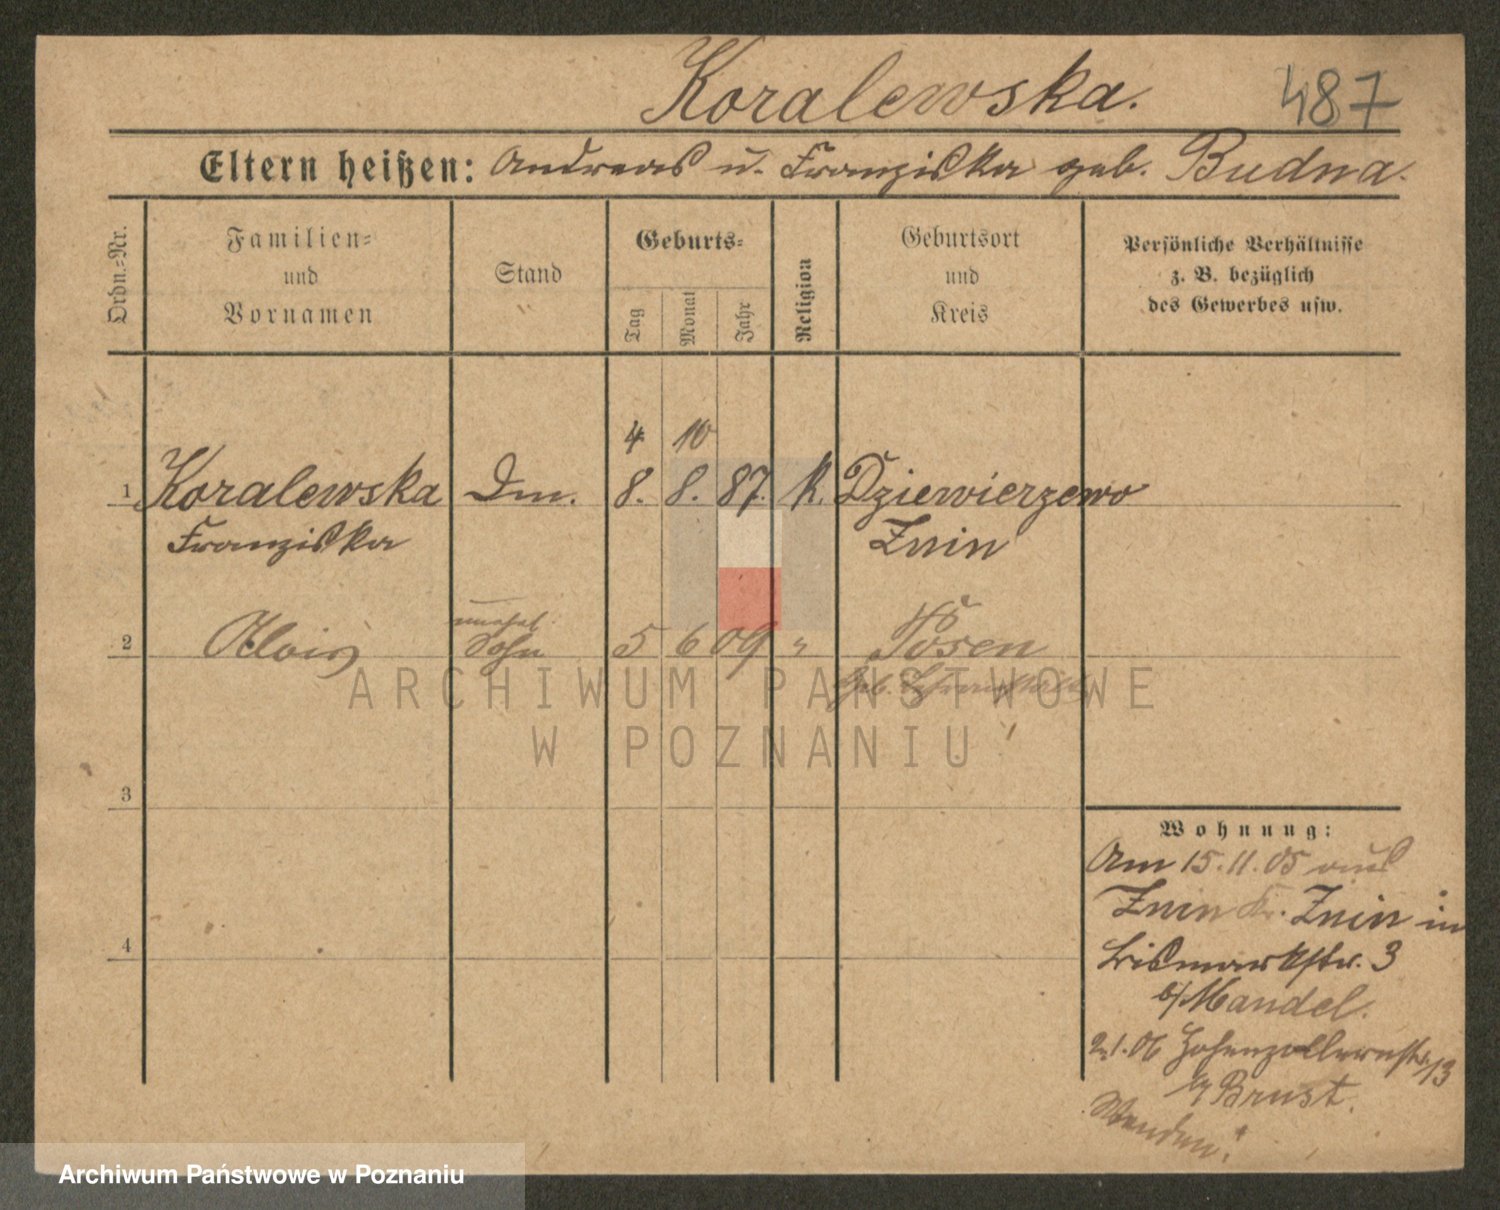 Koralewska. 487
Eltern heißen: Andreas u. Franziska geb. Budna.
Ordn.-Nr.
Familien- und Vornamen
Stand
Geburts-
Tag
Monat
Jahr
Religion
Geburtsort und Kreis
Persönliche Verhältnisse
z. B. bezüglich
des Gewerbes usw.
4 10
1 Koralewska Dm. 8. 8. 87. k. Dziewierzewo
Franziska Znin
unehel.
2 Alois Sohn 5 6 09 " Posen
Geb.
3
4
Wohnung:
Am 15.11.05 aus
Znin Kr. Znin in
Bismarkstr. 3
b/ Mandel.
2.1.06 Hohenzollernstr. 13
b/ Brust.
Wenden!
ARCHIWUM PAŃSTWOWE
W POZNANIU
Archiwum Państwowe w Poznaniu